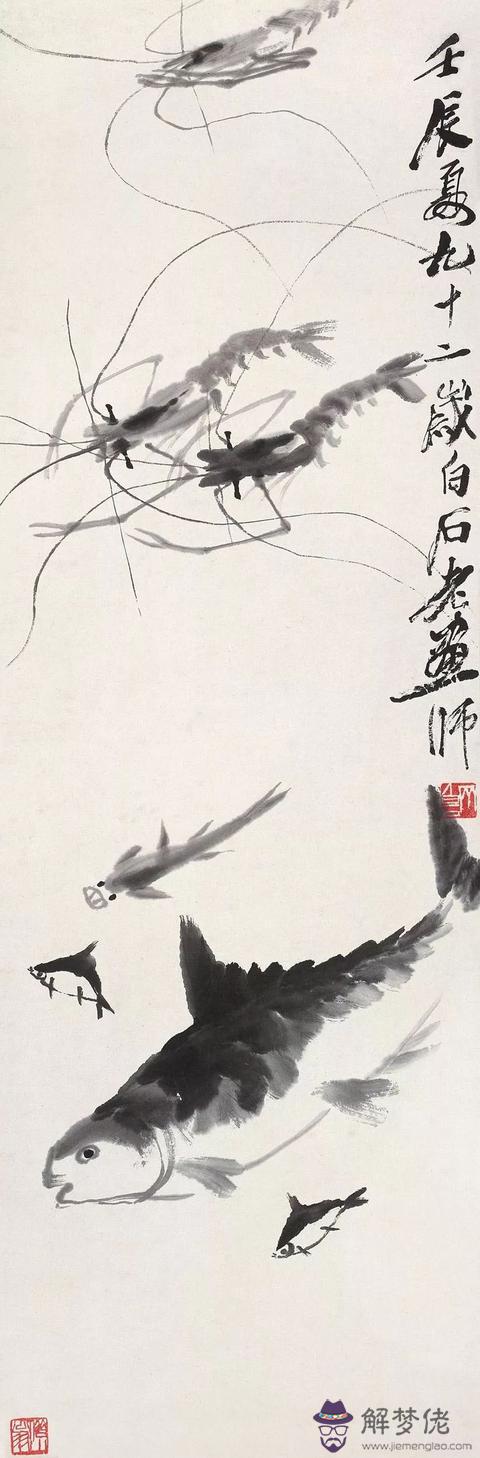 壬辰夏九十二歲白石老畫師
解梦佬
www.jiemenglao.com